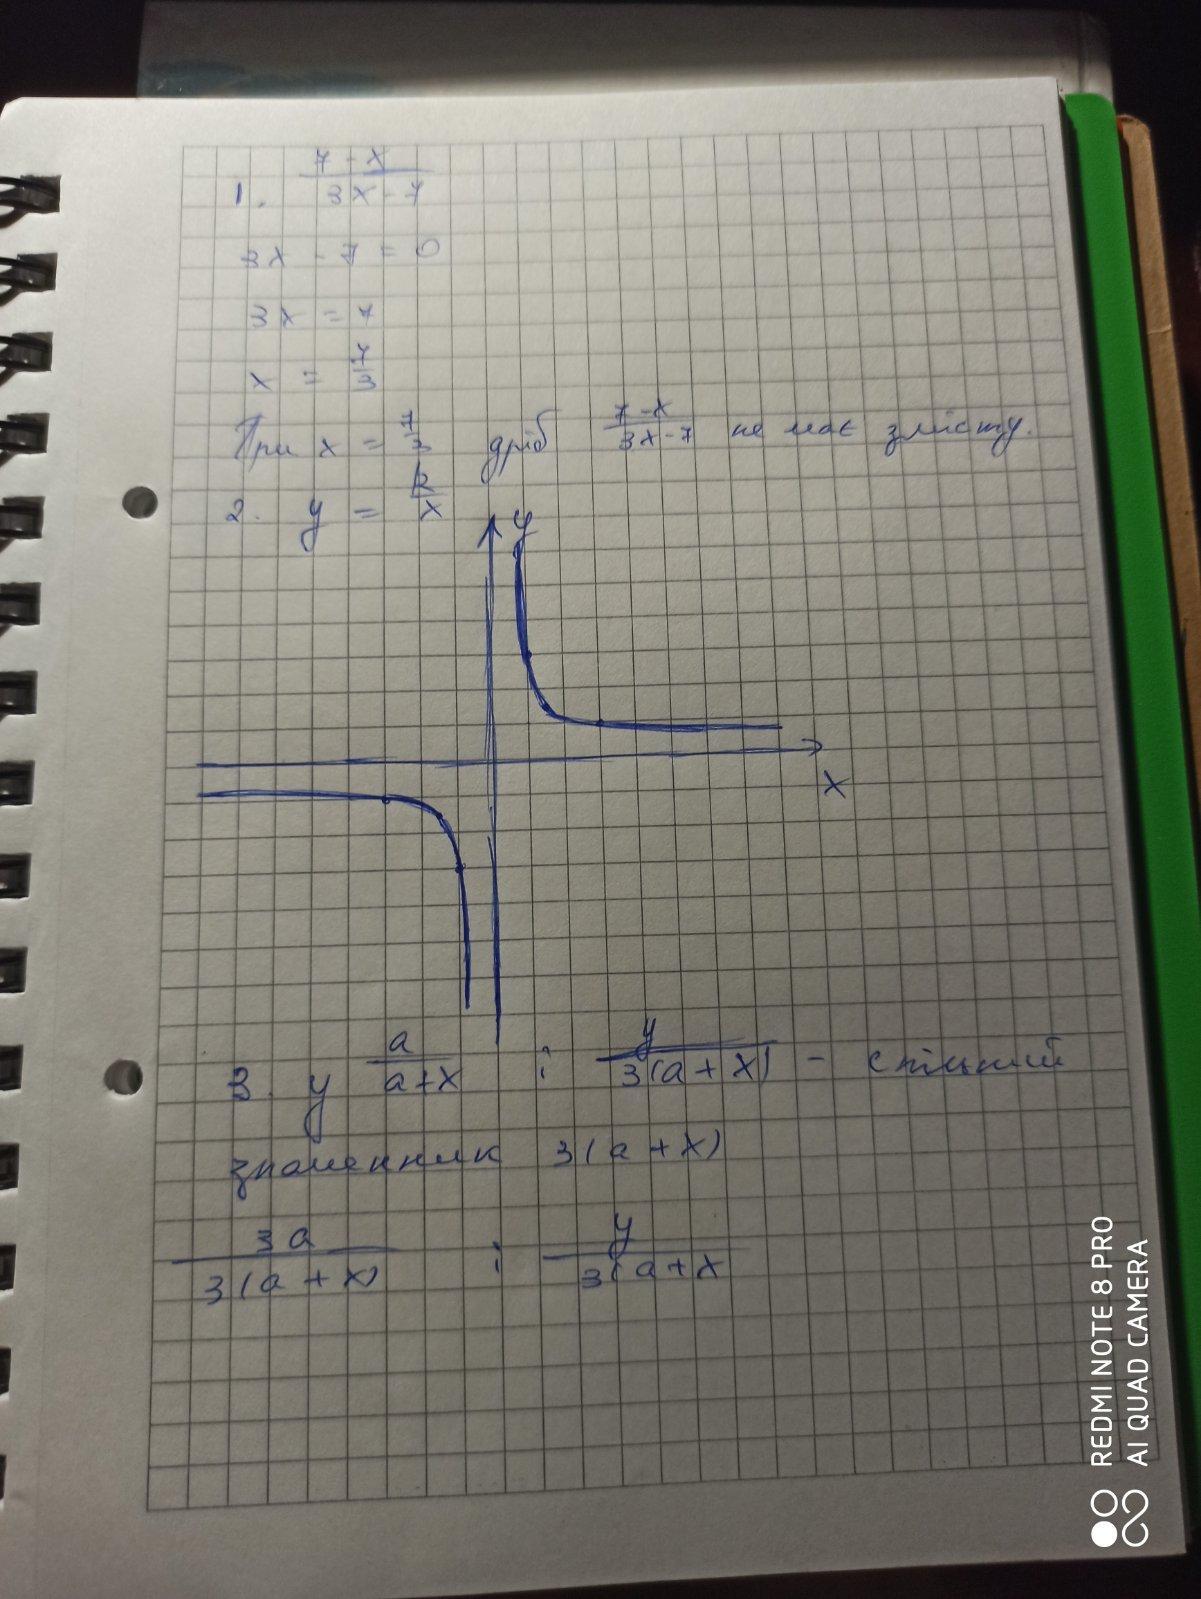 1. \frac{7-x}{3x-7}
3x - 7 = 0
3x = 7
x = \frac{7}{3}
При x = \frac{7}{3} дріб \frac{7-x}{3x-7} не має змісту.
2. y = \frac{k}{x}
y
x
3. у \frac{a}{a+x} і \frac{y}{3(a+x)} - спільний
знаменник 3(a+x)
\frac{3a}{3(a+x)} і \frac{y}{3(a+x}
REDMI NOTE 8 PRO
AI QUAD CAMERA